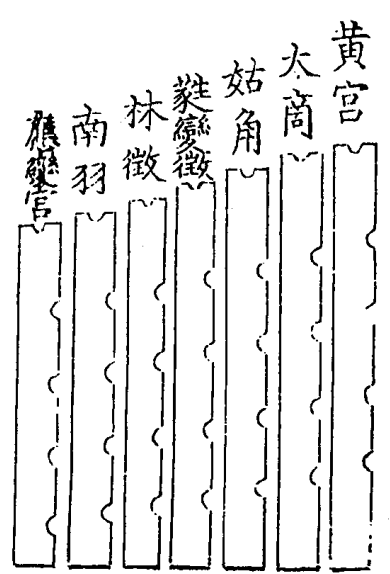 黄宫
太商
姑角
蕤變徵
林徵
南羽
應變宫